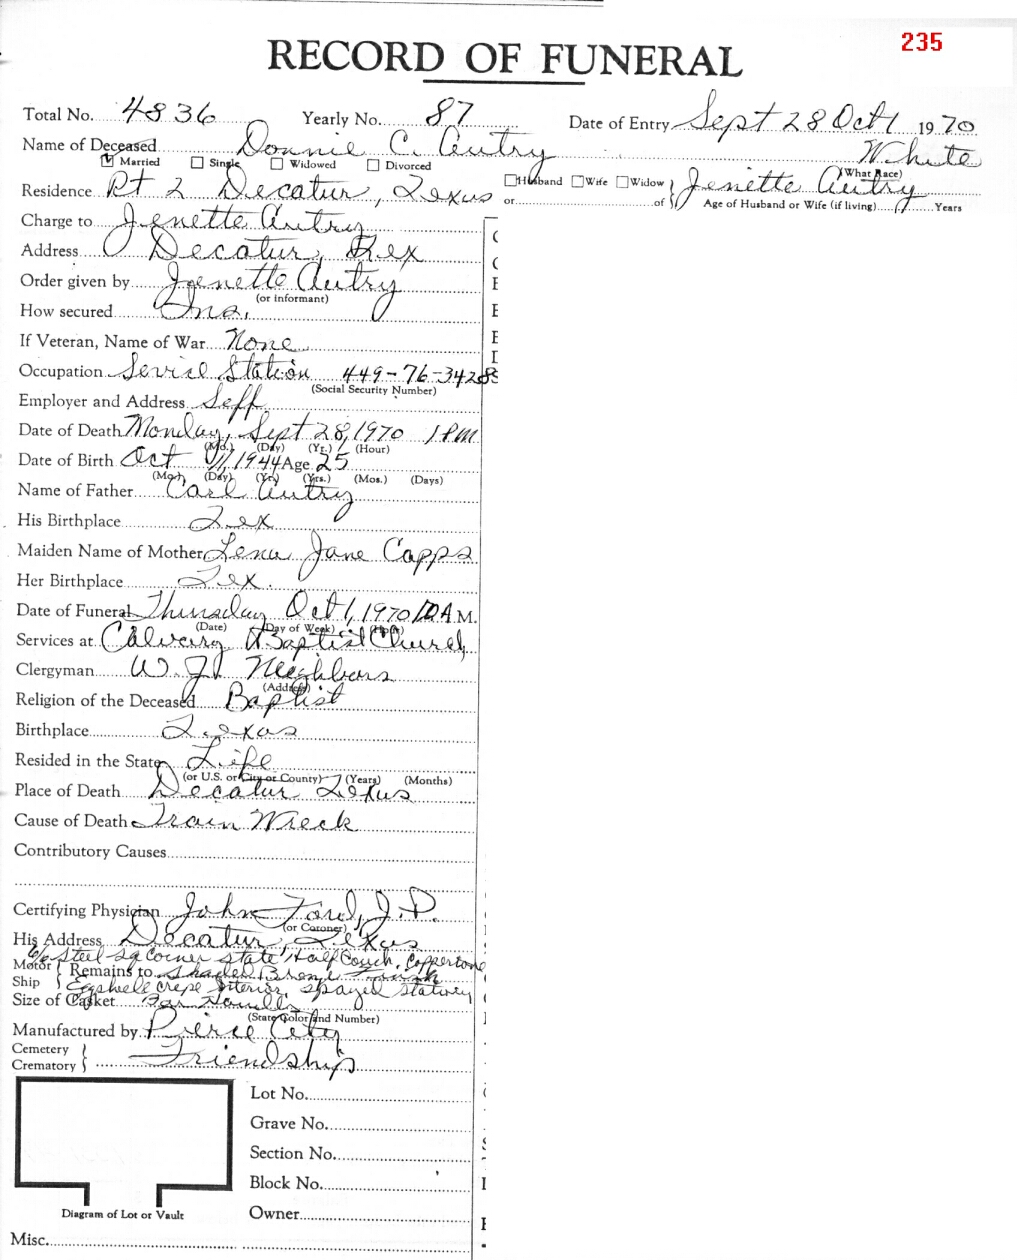 235
RECORD OF FUNERAL
Total No. 4836 Yearly No. 87 Date of Entry Sept 28 Oct 1 1970
Name of Deceased Donnie C. Autry White
Married Single Widowed Divorced (What Race)
Residence Rt 2 Decatur, Texas Husband Wife Widow Jenette Autry
or of Age of Husband or Wife (if living) Years
Charge to Jenette Autry
Address Decatur, Tex
Order given by Jenette Autry
(or informant)
How secured Ins.
If Veteran, Name of War None
Occupation Service Station 449-76-3428
(Social Security Number)
Employer and Address Self
Date of Death Monday, Sept 28, 1970 1 PM
(Mo.) (Day) (Yr.) (Hour)
Date of Birth Oct 11, 1944 Age 25
(Mo.) (Day) (Yr.) (Yrs.) (Mos.) (Days)
Name of Father Carl Autry
His Birthplace Tex
Maiden Name of Mother Lena Jane Capps
Her Birthplace Tex.
Date of Funeral Thursday Oct 1, 1970 10 A M.
(Date) (Day of Week) (Hour)
Services at Calvary Baptist Church
Clergyman W. J. Neighbors
(Address)
Religion of the Deceased Baptist
Birthplace Texas
Resided in the State Life
(or U.S. or City or County) (Years) (Months)
Place of Death Decatur Texas
Cause of Death Train Wreck
Contributory Causes
Certifying Physician John Ford, J.P.
(or Coroner)
His Address Decatur, Texas
6/6 Steel Sq Corner state, Half Couch, Coppertone
Motor Remains to Shaded Bronze Finish
Ship Eggshell crepe interior
Size of Casket
(State Color and Number)
Manufactured by Pierce City
Cemetery
Crematory Friendship
Lot No.
Grave No.
Section No.
Block No.
Diagram of Lot or Vault
Owner
Misc.